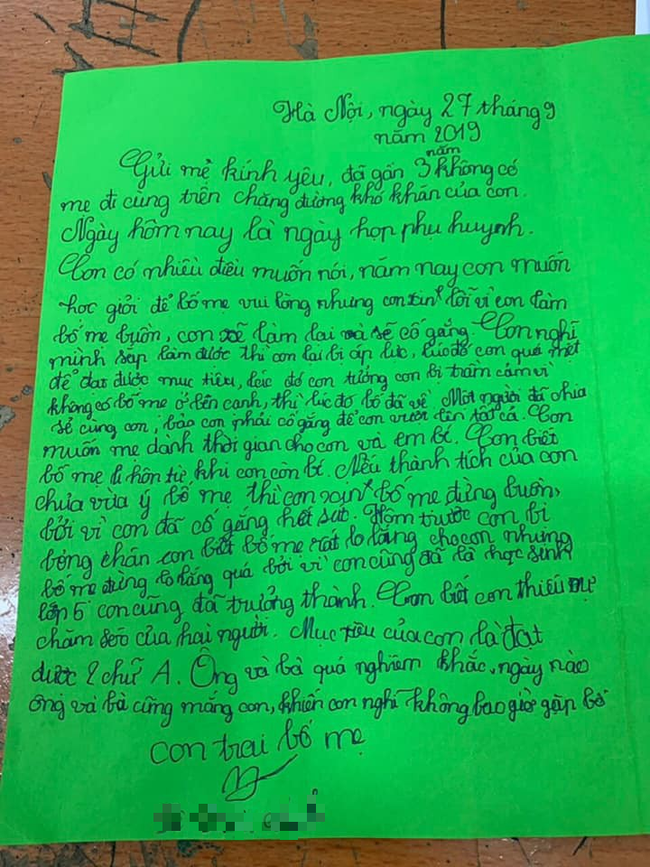 Hà Nội, ngày 27 tháng 9
năm 2019
Gửi mẹ kính yêu, đã gần 3 năm không có
mẹ đi cùng trên chặng đường khó khăn của con.
Ngày hôm nay là ngày họp phụ huynh.
Con có nhiều điều muốn nói, năm nay con muốn
học giỏi để bố mẹ vui lòng nhưng con xin lỗi vì con làm
bố mẹ buồn, con sẽ làm lại và sẽ cố gắng. Con nghĩ
mình sắp làm được thì con lại bị áp lực, lúc đó con quá mệt
để đạt được mục tiêu, lúc đó con tưởng con bị trầm cảm vì
không có bố mẹ ở bên cạnh, thì lúc đó bố đã về. Một người đã chia
sẻ cùng con, bảo con phải cố gắng để con vượt lên tất cả. Con
muốn mẹ dành thời gian cho con và em bí. Con biết
bố mẹ li hôn từ khi con còn bí. Nếu thành tích của con
chưa vừa ý bố mẹ thì con xin bố mẹ đừng buồn,
bởi vì con đã cố gắng hết sức. Hôm trước con bị
bỏng chân con biết bố mẹ rất lo lắng cho con nhưng
bố mẹ đừng lo lắng quá bởi vì con cũng đã là học sinh
lớp 5 con cũng đã trưởng thành. Con biết con thiếu sự
chăm sóc của hai người. Mục tiêu của con là đạt
được 2 chữ A. Ông và bà quá nghiêm khắc, ngày nào
ông và bà cũng mắng con, khiến con nghĩ không bao giờ gặp bố
con trai bố mẹ